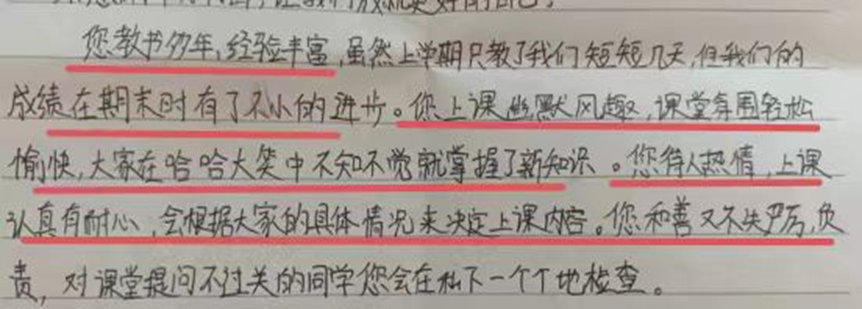 您教书多年,经验丰富,虽然上学期只教了我们短短几天,但我们的
成绩在期末时有了不小的进步。您上课幽默风趣,课堂氛围轻松
愉快,大家在哈哈大笑中不知不觉就掌握了新知识。您待人热情,上课
认真有耐心,会根据大家的具体情况来决定上课内容。您和善又不失严厉,负
责,对课堂提问不过关的同学您会在私下一个个地检查。